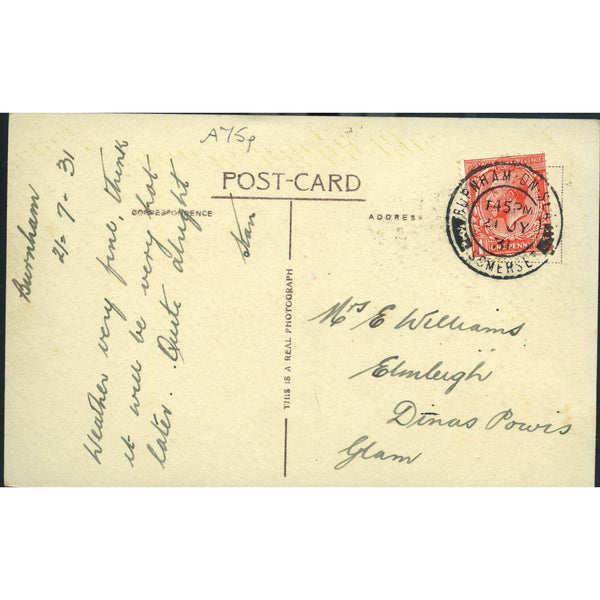 A75p
POST-CARD
CORRESPONDENCE
ADDRESS
THIS IS A REAL PHOTOGRAPH
Burnham
21-7-31
Weather very fine, think
it will be very hot
later. Quite alright
Stan
Mrs E Williams
Elmleigh
Dinas Powis
Glam
BURNHAM-ON-SEA
1 45 PM
21 JY
31
SOMERSET
ONE PENNY